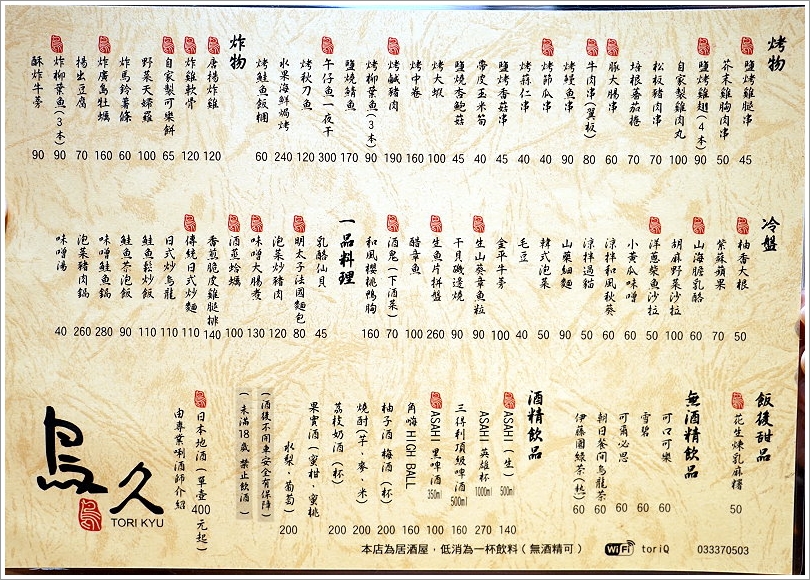 烤物
鹽烤雞腿串 45
芥末雞胸肉串 50
鹽烤雞翅(4本) 90
自家製雞肉丸 100
松板豬肉串 70
培根蕃茄捲 70
豚大腸串 60
牛肉串(翼板) 80
烤鰻魚串 90
烤節瓜串 40
烤蒜仁串 40
鹽烤香菇串 45
帶皮玉米筍 40
鹽燒杏鮑菇 45
烤大蝦 100
烤中卷 160
烤鹹豬肉 190
烤柳葉魚(3本) 90
鹽燒鯖魚 170
午仔魚一夜干 300
烤秋刀魚 120
水果海鮮焗烤 240
烤鮭魚飯糰 60
炸物
唐揚炸雞 120
炸雞軟骨 120
自家製可樂餅 65
野菜天婦羅 100
炸馬鈴薯條 60
炸廣島牡蠣 160
揚出豆腐 70
炸柳葉魚(3本) 90
酥炸牛蒡 90
冷盤
柚香大根 50
紫蘇蘋果 70
山海膽乳酪 60
胡麻野菜沙拉 100
洋蔥柴魚沙拉 50
小黃瓜味噌 60
涼拌和風秋葵 60
涼拌過貓 50
山藥細麵 90
韓式泡菜 50
毛豆 40
金平牛蒡 100
生山葵章魚粒 90
干貝磯邊燒 90
生魚片拼盤 260
醋章魚 100
酒鬼(下酒菜) 70
和風櫻桃鴨胸 160
一品料理
乳酪仙貝 45
明太子法國麵包 80
泡菜炒豬肉 120
味噌大腸煮 130
酒蒸蛤蠣 100
香煎脆皮雞腿排 140
傳統日式炒麵 110
日式炒烏龍 110
鮭魚鬆炒飯 110
鮭魚茶泡飯 90
味噌鮭魚鍋 280
泡菜豬肉鍋 260
味噌湯 40
飯後甜品
花生煉乳麻糬 50
無酒精飲品
可口可樂 60
雪碧 60
可爾必思 60
朝日餐間烏龍茶 60
伊藤園綠茶(熱) 60
酒精飲品
ASAHI(生) 500ml 140
ASAHI 英雄杯 1000ml 270
三得利頂級啤酒 500ml 160
ASAHI 黑啤酒 350ml 100
角嗨 HIGH BALL 160
柚子酒 梅酒(杯) 200
燒酎(芋、麥、米) 200
荔枝奶酒(杯) 200
果實酒(蜜柑、蜜桃
水梨、葡萄) 200
(酒後不開車安全有保障)
(未滿18歲 禁止飲酒)
日本地酒(單壺400元起)
由專業唎酒師介紹
鳥久
TORI KYU
本店為居酒屋,低消為一杯飲料(無酒精可)
WiFi toriQ
033370503